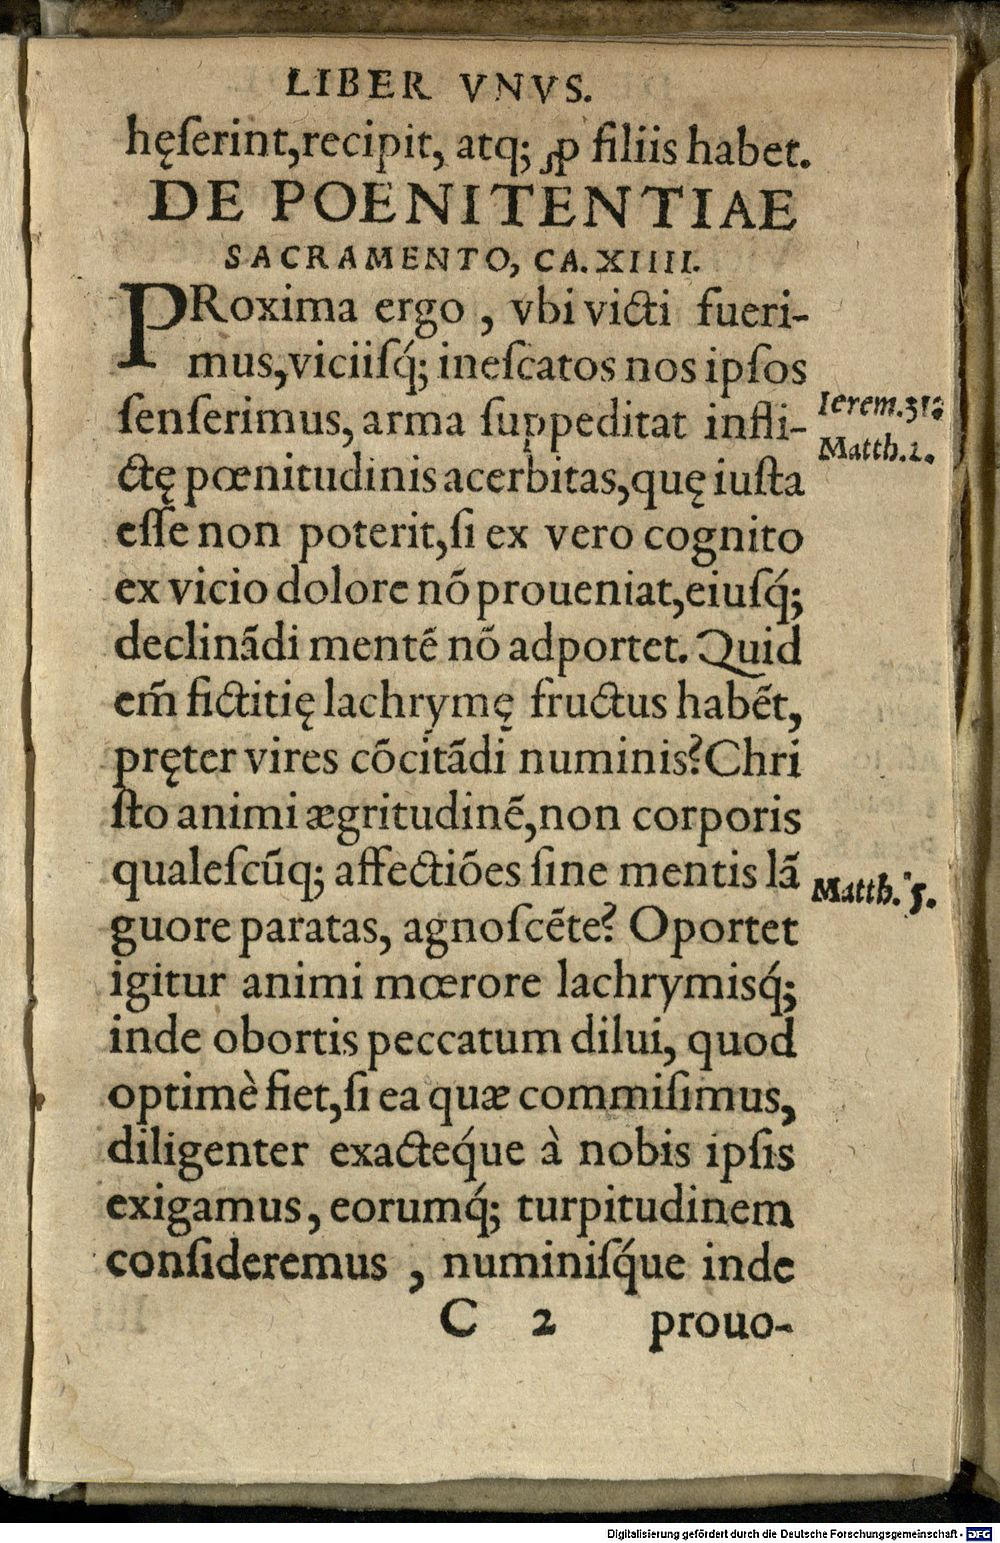 LIBER VNVS.
hęſerint,recipit, atq; ꝓ filiis habet.
DE POENITENTIAE
SACRAMENTO, CA.XIIII.
PRoxima ergo , vbi victi fueri-
mus,viciiſq́; ineſcatos nos ipſos
ſenſerimus, arma ſuppeditat infli-
ctę pœnitudinis acerbitas,quę iuſta
eſſe non poterit,ſi ex vero cognito
ex vicio dolore nõ proueniat,eiuſq́;
declinãdi mentẽ nõ adportet. Quid
em̃ fictitię lachrymę fructus habẽt,
pręter vires cõcitãdi numinis? Chri
ſto animi ægritudinẽ,non corporis
qualeſcũq; affectiões ſine mentis lã
guore paratas, agnoſcẽte? Oportet
igitur animi mœrore lachrymiſq́;
inde obortis peccatum dilui, quod
optimè fiet,ſi ea quæ commiſimus,
diligenter exacteq́ue à nobis ipſis
exigamus, eorumq́; turpitudinem
conſideremus , numiniſq́ue inde
C 2 prouo-
Ierem.31.
Matth.2.
Matth. 5.
Digitalisierung gefördert durch die Deutsche Forschungsgemeinschaft - DFG